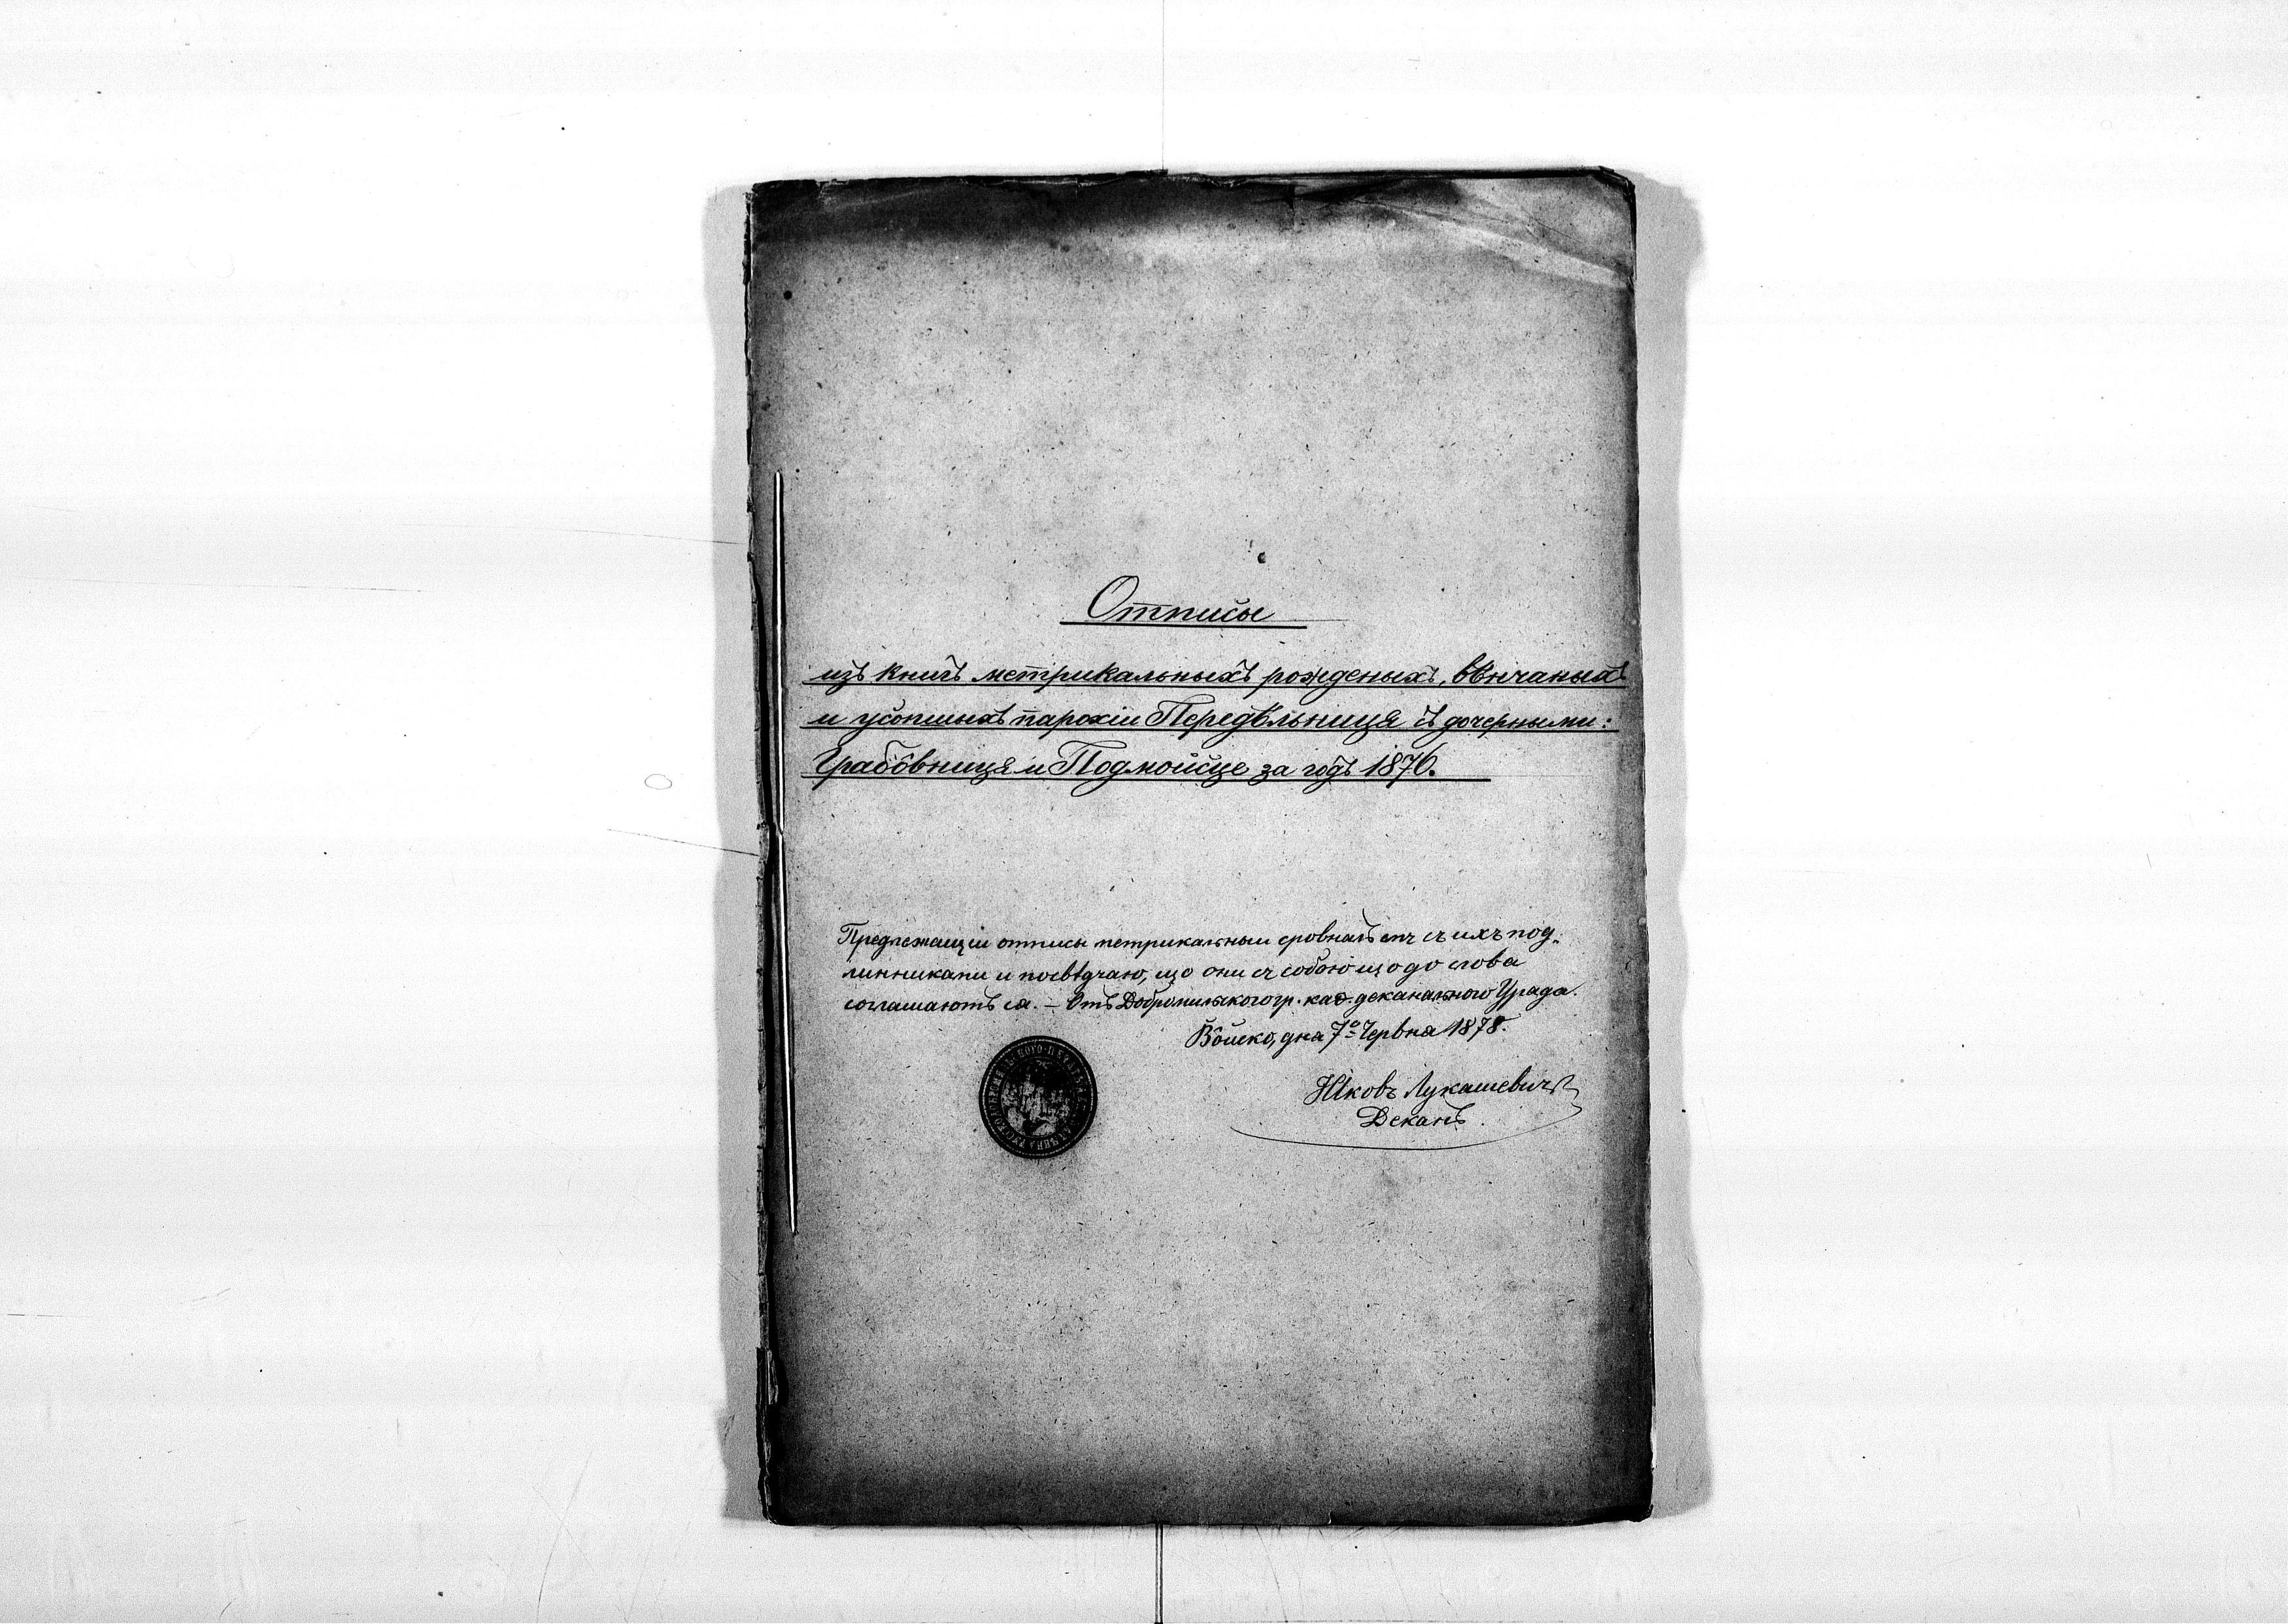 Отписы
изъ книгъ метрикальныхъ рожденыхъ, вѣнчаныхъ
и усопшыхъ парохіи Передѣльниця съ дочерными:
Грабôвниця и Подмойсце за годъ 1876.
Предлежащіи отписы метрикальныи сровналъ емъ съ ихъ под-
линниками и посвѣдчаю, що они съ собою що до слова
соглашаютъ ся. — Отъ Добромильского гр. каѳ. деканального Уряда.
Вôйско, дня 7го Червня 1878.
Яковъ Лукашевичъ
Деканъ